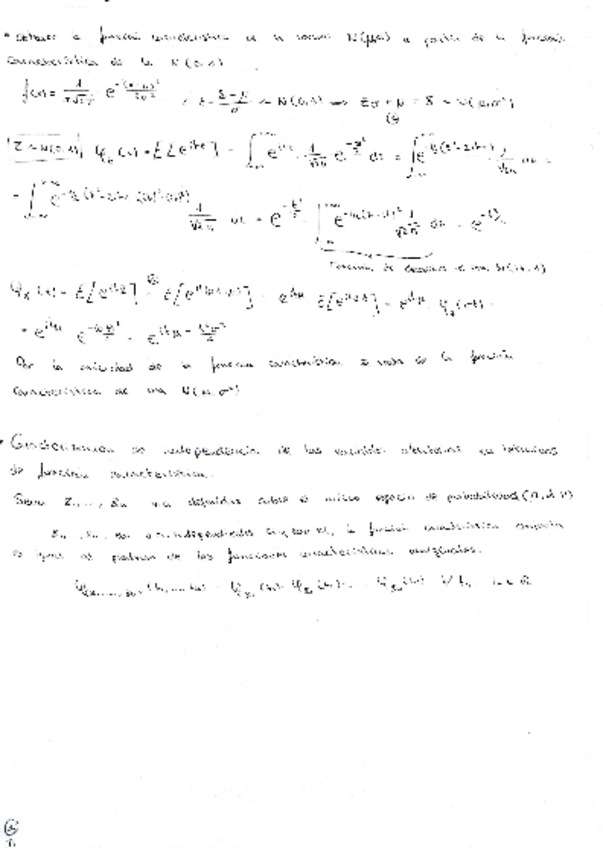 • Obtener la función característica de la normal N(μ,σ²) a partir de la función
característica de la N(0,1)
f(x) = 1/(σ√2π) e^{-(x-μ)²/2σ²} / Z = (X-μ)/σ ~ N(0,1) ⟹ Zσ + μ = X ~ N(μ,σ²)
Z ~ N(0,1) φ_z(t) = E[e^{itz}] = ∫ e^{itz} 1/√2π e^{-z²/2} dz = ∫ e^{-1/2(z²-2itz)} 1/√2π dz =
= ∫ 1/√2π dz = e^{-t²/2} ∫ e^{-1/2(z-it)²} 1/√2π dz = e^{-t²/2}
Función de densidad de una N(it,1)
φ_X(t) = E[e^{itX}] = E[e^{it(σz+μ)}] = e^{itμ} E[e^{itσz}] = e^{itμ} φ_z(tσ) =
= e^{itμ} e^{-(tσ)²/2} = e^{itμ - t²σ²/2}
Por la unicidad de la función característica se trata de la función
característica de una N(μ,σ²)
• Caracterización de independencia de las variables aleatorias en términos
de función característica.
Sean X₁,..., Xₙ v.a definidas sobre el mismo espacio de probabilidad
X₁,..., Xₙ son v.a. independientes la función característica conjunta
es igual al producto de las funciones características marginales.